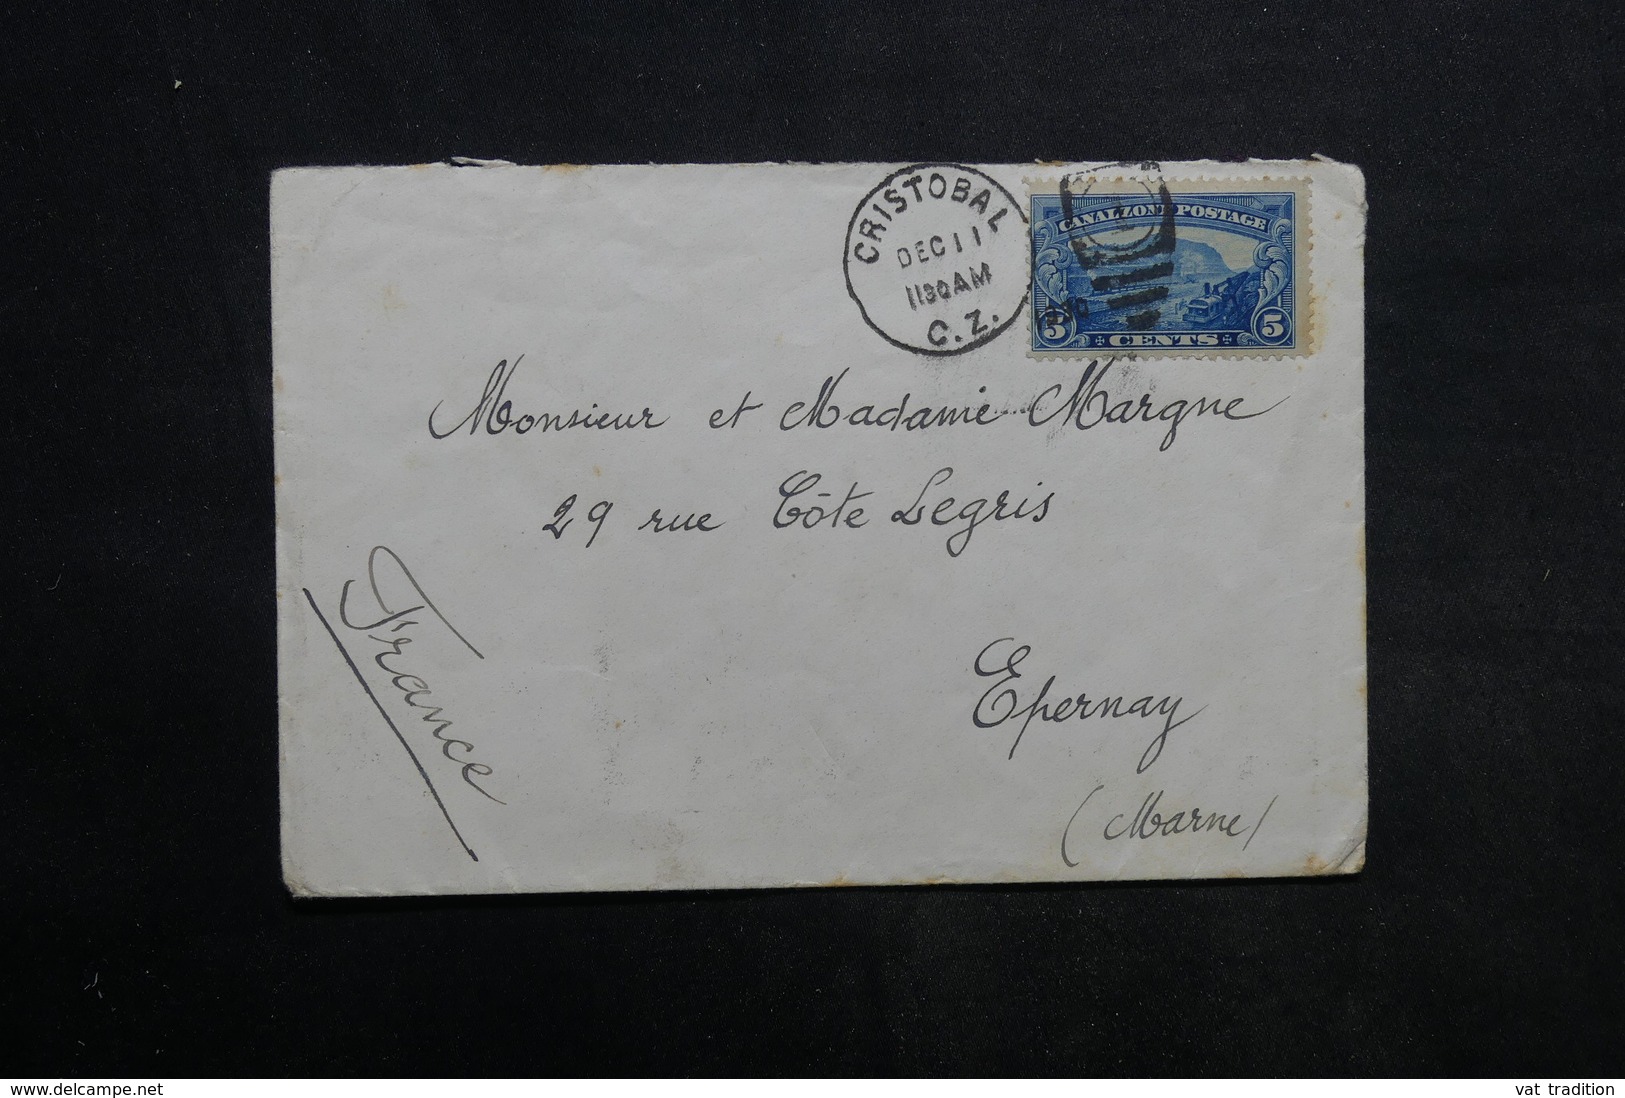 CRISTOBAL
DEC 11
1130AM
C. Z.
CANAL ZONE POSTAGE
5 CENTS 5
Monsieur et Madame Margne
29 rue Côte Legris
Epernay
(Marne)
France
www.delcampe.net
vat tradition